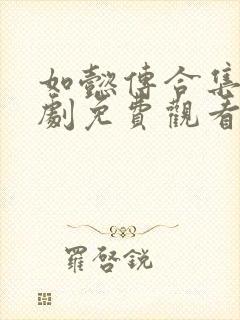 如懿傳合集
劇免費觀看
羅啓銳